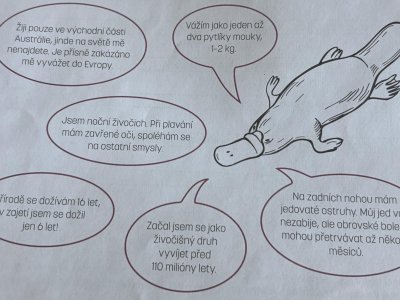 Žiji pouze ve východní části
Austrálie, jinde na světě mě
nenajdete. Je přísně zakázáno
mě vyvážet do Evropy.
Vážím jako jeden až
dva pytlíky mouky,
1–2 kg.
Jsem noční živočich. Při plavání
mám zavřené oči, spoléhám se
na ostatní smysly.
přírodě se dožívám 16 let,
v zajetí jsem se dožil
jen 6 let!
Začal jsem se jako
živočišný druh
vyvíjet před
110 miliony lety.
Na zadních nohou mám
jedovaté ostruhy. Můj jed
nezabije, ale obrovské
mohou přetrvávat až
měsíců.